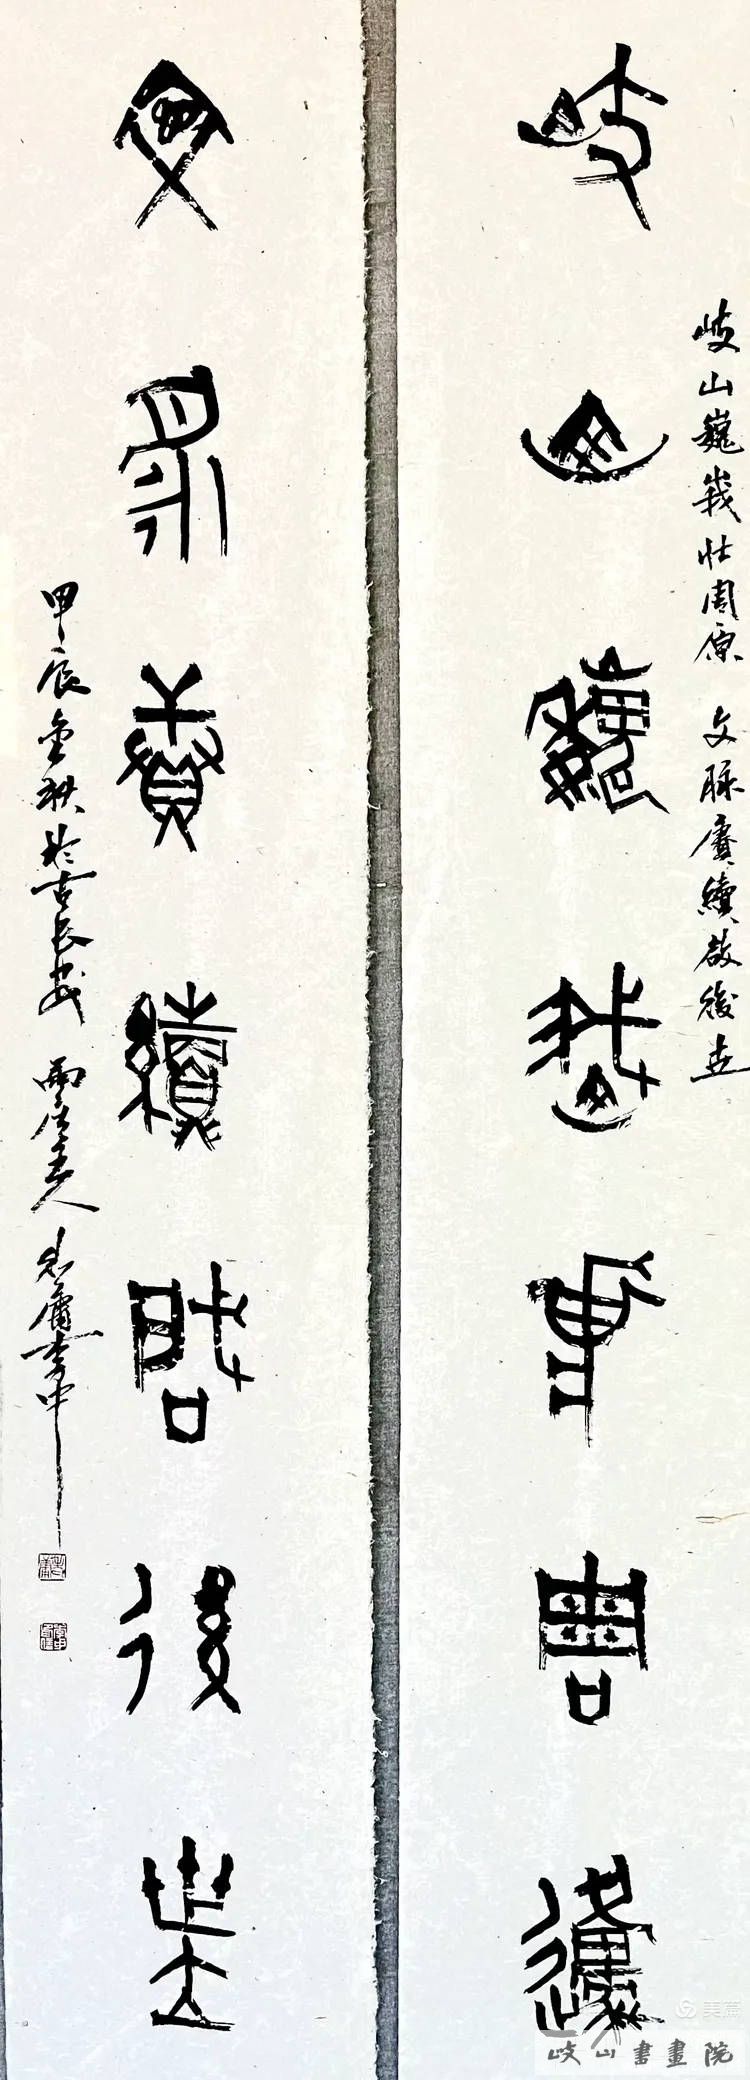 岐山巍峩壮周邍
岐山巍峩壮周原 文脉賡續啟後世
文脉賡續啟後世
甲辰金秋於古長安 主人 庸李中
美篇
岐山書畫院